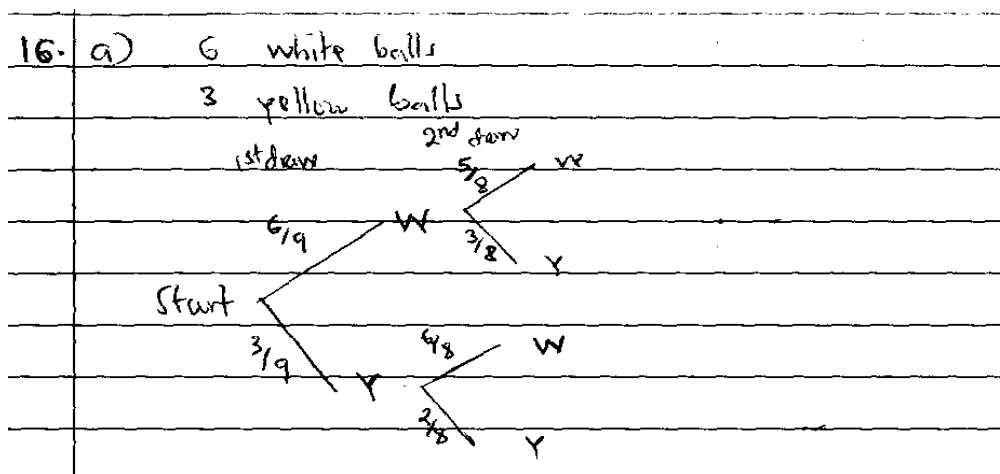 16. a) 6 white balls
3 yellow balls
1st draw 2nd draw
5/8 W
6/9 W
3/8 Y
Start
3/9 Y
6/8 W
2/8 Y